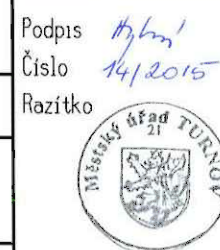 Podpis
Číslo 14/2015
Razítko
Městský úřad TURNOV
21